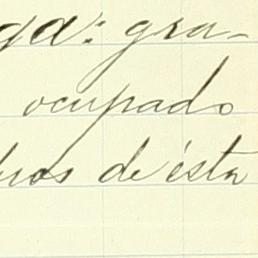 ga: gra-
ocupado
bros de ésta